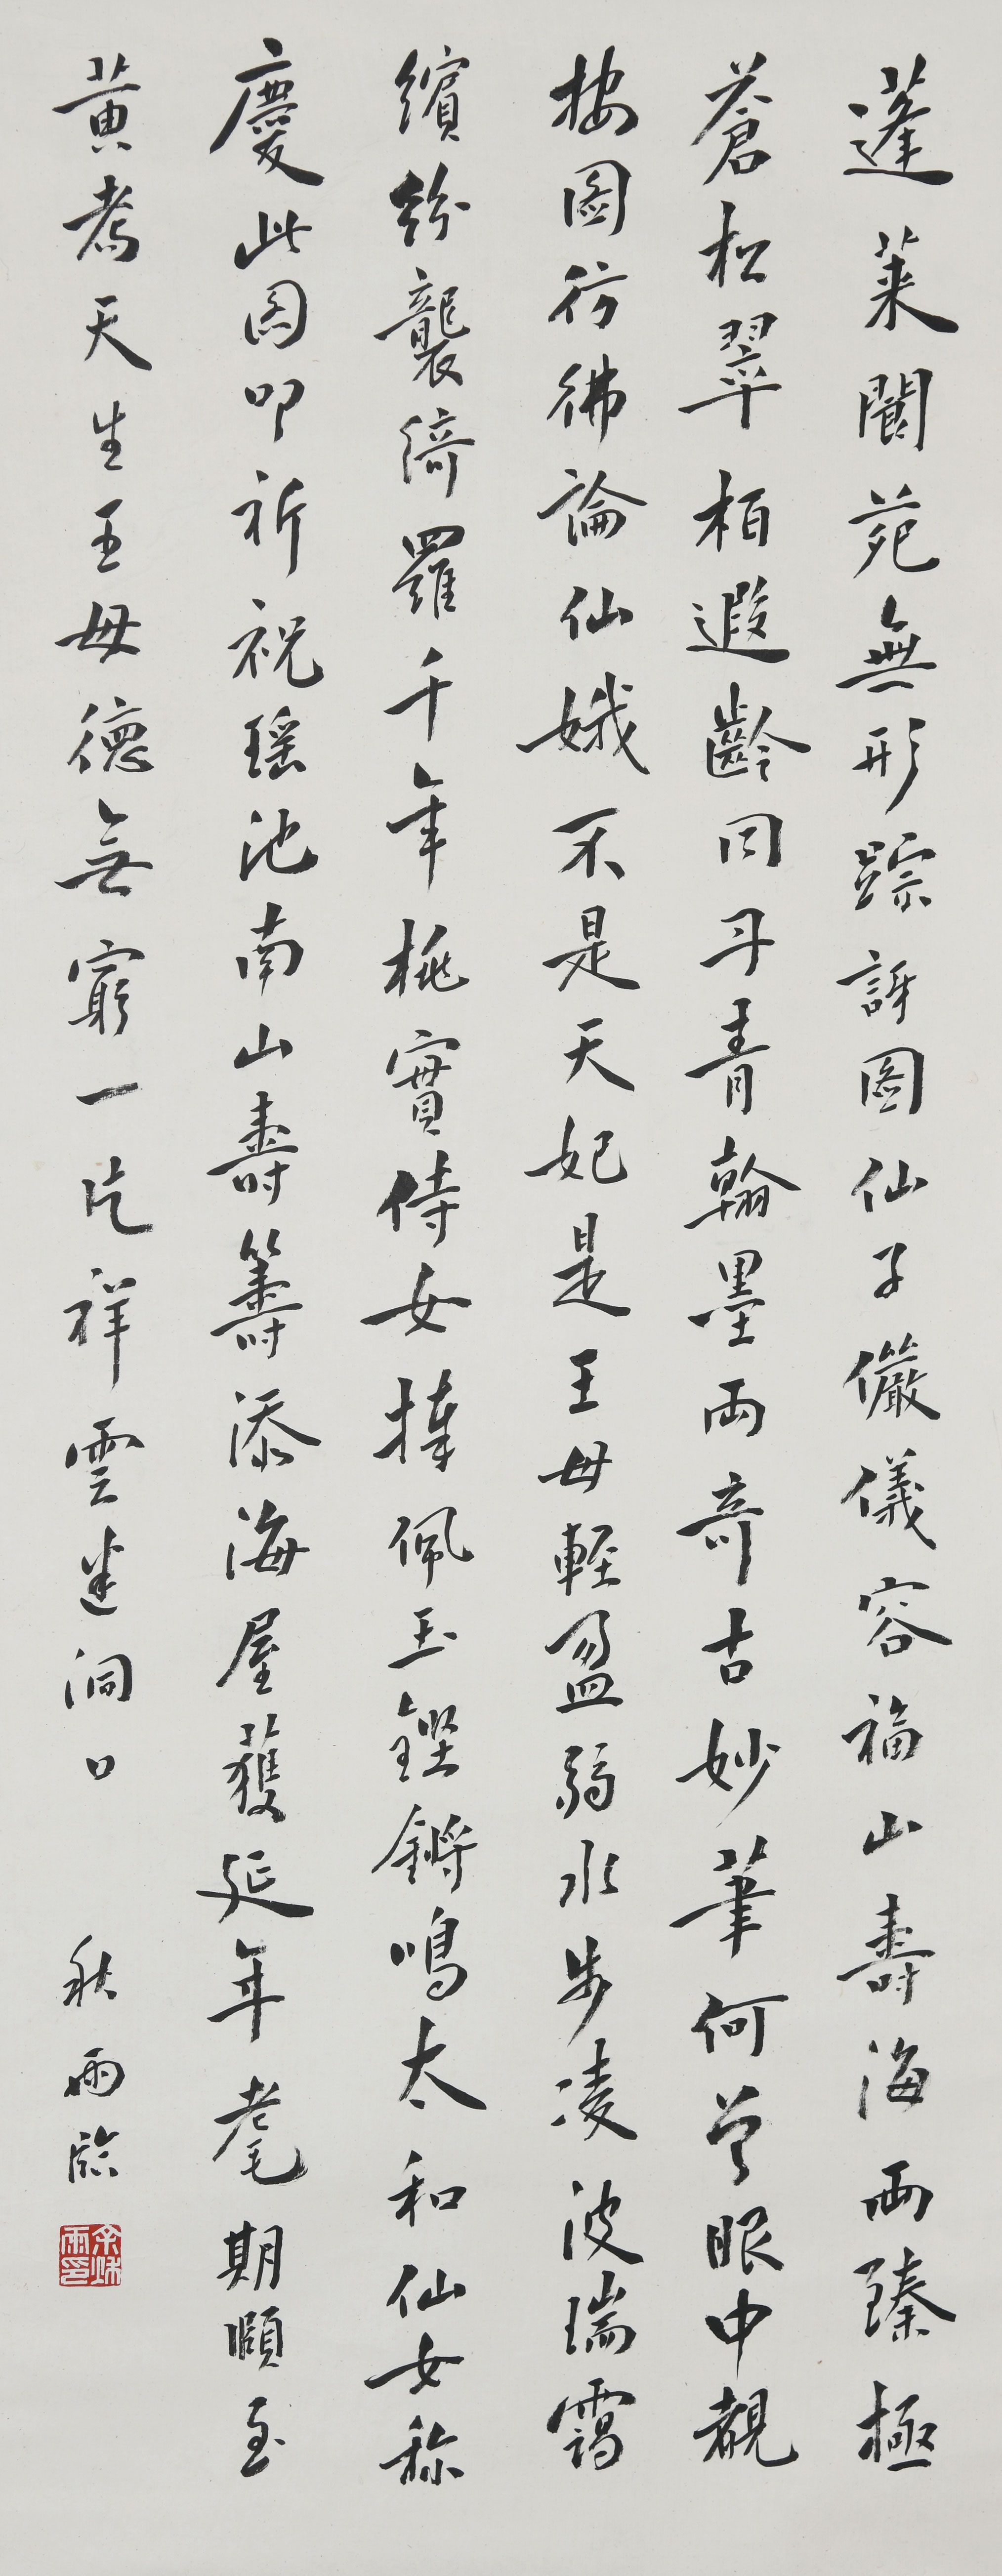 蓬萊閬苑無形踪訝圖仙子儼儀容福山壽海兩臻極
蒼松翠柏遐齡同丹青翰墨兩奇古妙筆何曾眼中覩
按圖彷彿論仙娥不是天妃是王母輕盈弱水步凌波瑞靄
繽紛襲綺羅千年桃實侍女捧佩玉鏗鏘鳴太和仙女称
慶此图叩祈祝瑤池南山壽籌添海屋獲延年耄期頤至
黄耇天生王母德無窮一片祥雲迷洞口
秋雨臨
余秋雨印